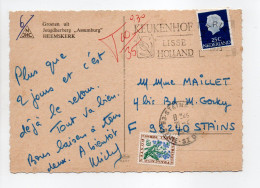 Groeten uit
Jeugdherberg „Assumburg"
HEEMSKERK
KEUKENHOF
LISSE
HOLLAND
NEDERLAND
25c
Plus que
2 jours et c'est
déjà le retour.
Tout va bien.
Bons baisers à tous
deux. A bientôt
Michy
M Mme MAILLET
4 bis Bd M. Gorky
F 93240 STAINS